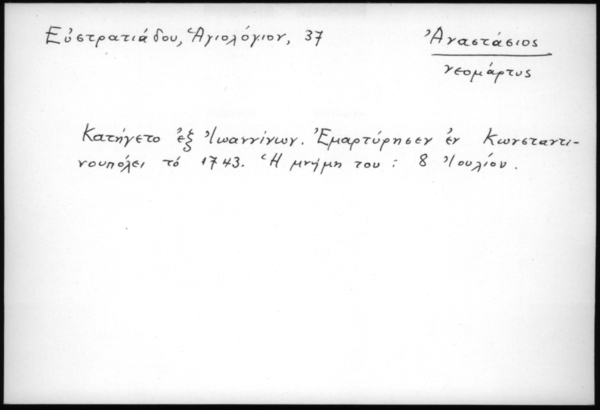 Εὐστρατιάδου, Ἁγιολόγιον, 37
Ἀναστάσιος
νεομάρτυς
Κατήγετο ἐξ Ἰωαννίνων. Ἐμαρτύρησεν ἐν Κωνσταντι-
νουπόλει τό 1743. Ἡ μνήμη του : 8 Ἰουλίου.